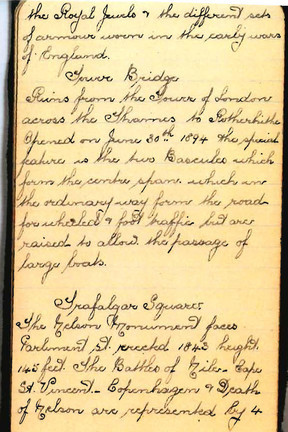 the Royal Jewels & the different sets
of armour worn in the early wars
of England.
Tower Bridge
Runs from the Tower of London
across the Thames to Rotherhithe
Opened on June 30th 1894 the special
feature is the two Bascules which
form the centre span. which in
the ordinary way form the road
for wheeled & foot traffic but are
raised to allow the passage of
large boats.
Trafalgar Square
The Nelson Monument faces
Parliment St. erected 1843 height
145 feet. The Battles of Nile - Cape
St. Vincent - Copenhagen & Death
of Nelson are represented by 4